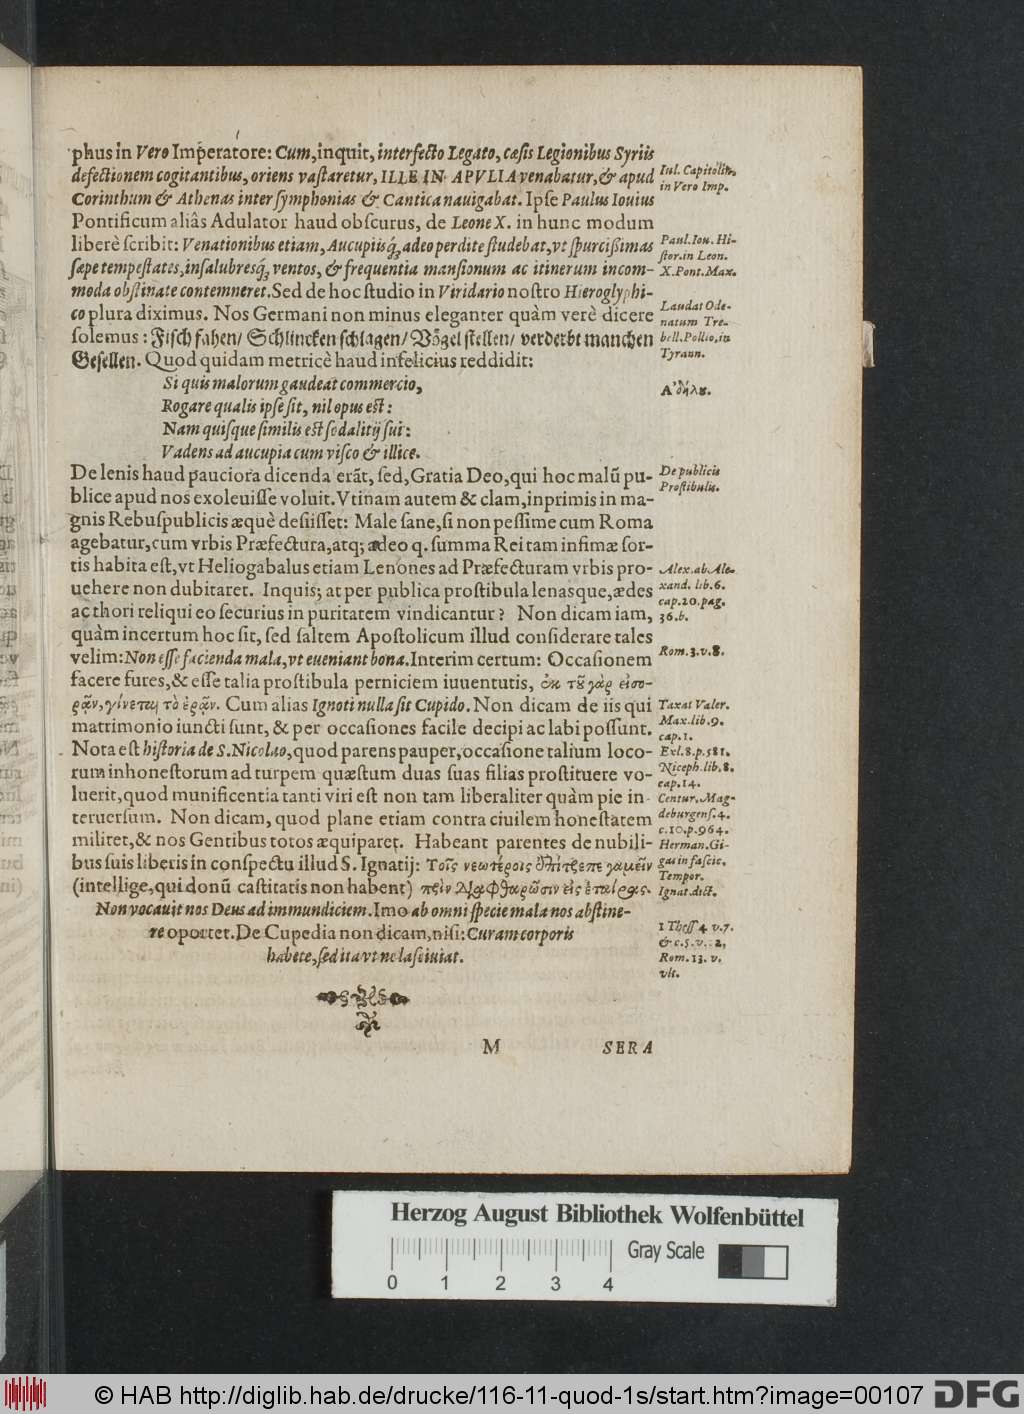 phus in Vero Imperatore: Cum, inquit, interfecto Legato, cæsis Legionibus Syriis
defectionem cogitantibus, oriens vastaretur, ILLE IN APVLIA venabatur, & apud
Corinthum & Athenas inter symphonias & Cantica nauigabat. Ipse Paulus Iouius
Pontificum aliâs Adulator haud obscurus, de Leone X. in hunc modum
liberè scribit: Venationibus etiam, Aucupiisq́; adeo perdite studebat, vt spurcißimas
sæpe tempestates, insalubresq́; ventos, & frequentia mansionum ac itinerum incom-
moda obstinate contemneret. Sed de hoc studio in Viridario nostro Hieroglyphi-
co plura diximus. Nos Germani non minus eleganter quàm verè dicere
solemus: Fisch fahen/ Schlincken schlagen/ Vögel stellen/ verderbt manchen
Gesellen. Quod quidam metricè haud infelicius reddidit:
Si quis malorum gaudeat commercio,
Rogare qualis ipse sit, nil opus est:
Nam quisque similis est sodalitij sui:
Vadens ad aucupia cum visco & illice.
De lenis haud pauciora dicenda erãt, sed, Gratia Deo, qui hoc malũ pu-
blice apud nos exoleuisse voluit. Vtinam autem & clam, inprimis in ma-
gnis Rebuspublicis æquè desiisset: Male sane, si non pessime cum Roma
agebatur, cum vrbis Præfectura, atq; adeo q. summa Rei tam infimæ sor-
tis habita est, vt Heliogabalus etiam Lenones ad Præfecturam vrbis pro-
uehere non dubitaret. Inquis; at per publica prostibula lenasque, ædes
ac thori reliqui eo securius in puritatem vindicantur? Non dicam iam,
quàm incertum hoc sit, sed saltem Apostolicum illud considerare tales
velim: Non esse facienda mala, vt eueniant bona. Interim certum: Occasionem
facere fures, & esse talia prostibula perniciem iuuentutis, ἐκ τȣ͂ γὰρ εἰσο-
ρᾷν, γίνεται τὸ ἐρᾷν. Cum alias Ignoti nulla sit Cupido. Non dicam de iis qui
matrimonio iuncti sunt, & per occasiones facile decipi ac labi possunt.
Nota est historia de S. Nicolao, quod parens pauper, occasione talium loco-
rum inhonestorum ad turpem quæstum duas suas filias prostituere vo-
luerit, quod munificentia tanti viri est non tam liberaliter quàm pie in-
teruersum. Non dicam, quod plane etiam contra ciuilem honestatem
militet, & nos Gentibus totos æquiparet. Habeant parentes de nubili-
bus suis liberis in conspectu illud S. Ignatij: Τοῖς νεωτέροις ἐπιτρέπε γαμεῖν
(intellige, qui donũ castitatis non habent) πρὶν διαφθαρῶσιν εἰς ἑταίρας.
Non vocauit nos Deus ad immundiciem. Imo ab omni specie mala nos abstine-
re oportet. De Cupedia non dicam, nisi: Curam corporis
habete, sed ita vt ne lasciuiat.
M SERA
Iul. Capitolin.
in Vero Imp.
Paul. Iou. Hi-
stor. in Leon.
X. Pont. Max.
Laudat Ode-
natum Tre-
bell. Pollio, in
Tyrann.
Ἀδήλȣ.
De publicis
Prostibulis.
Alex. ab Ale-
xand. lib. 6.
cap. 20. pag.
36. b.
Rom. 3. v. 8.
Taxat Valer.
Max. lib. 9.
cap. 1.
Exl. 8. p. 581.
Niceph. lib. 8.
cap. 14.
Centur. Mag-
deburgens. 4.
c. 10. p. 964.
Herman. Gi-
gas in fascic.
Tempor.
Ignat. dict.
1 Thess. 4 v. 7.
& c. 5. v. 22.
Rom. 13. v.
vlt.
Herzog August Bibliothek Wolfenbüttel
Gray Scale
0 1 2 3 4
© HAB http://diglib.hab.de/drucke/116-11-quod-1s/start.htm?image=00107
DFG